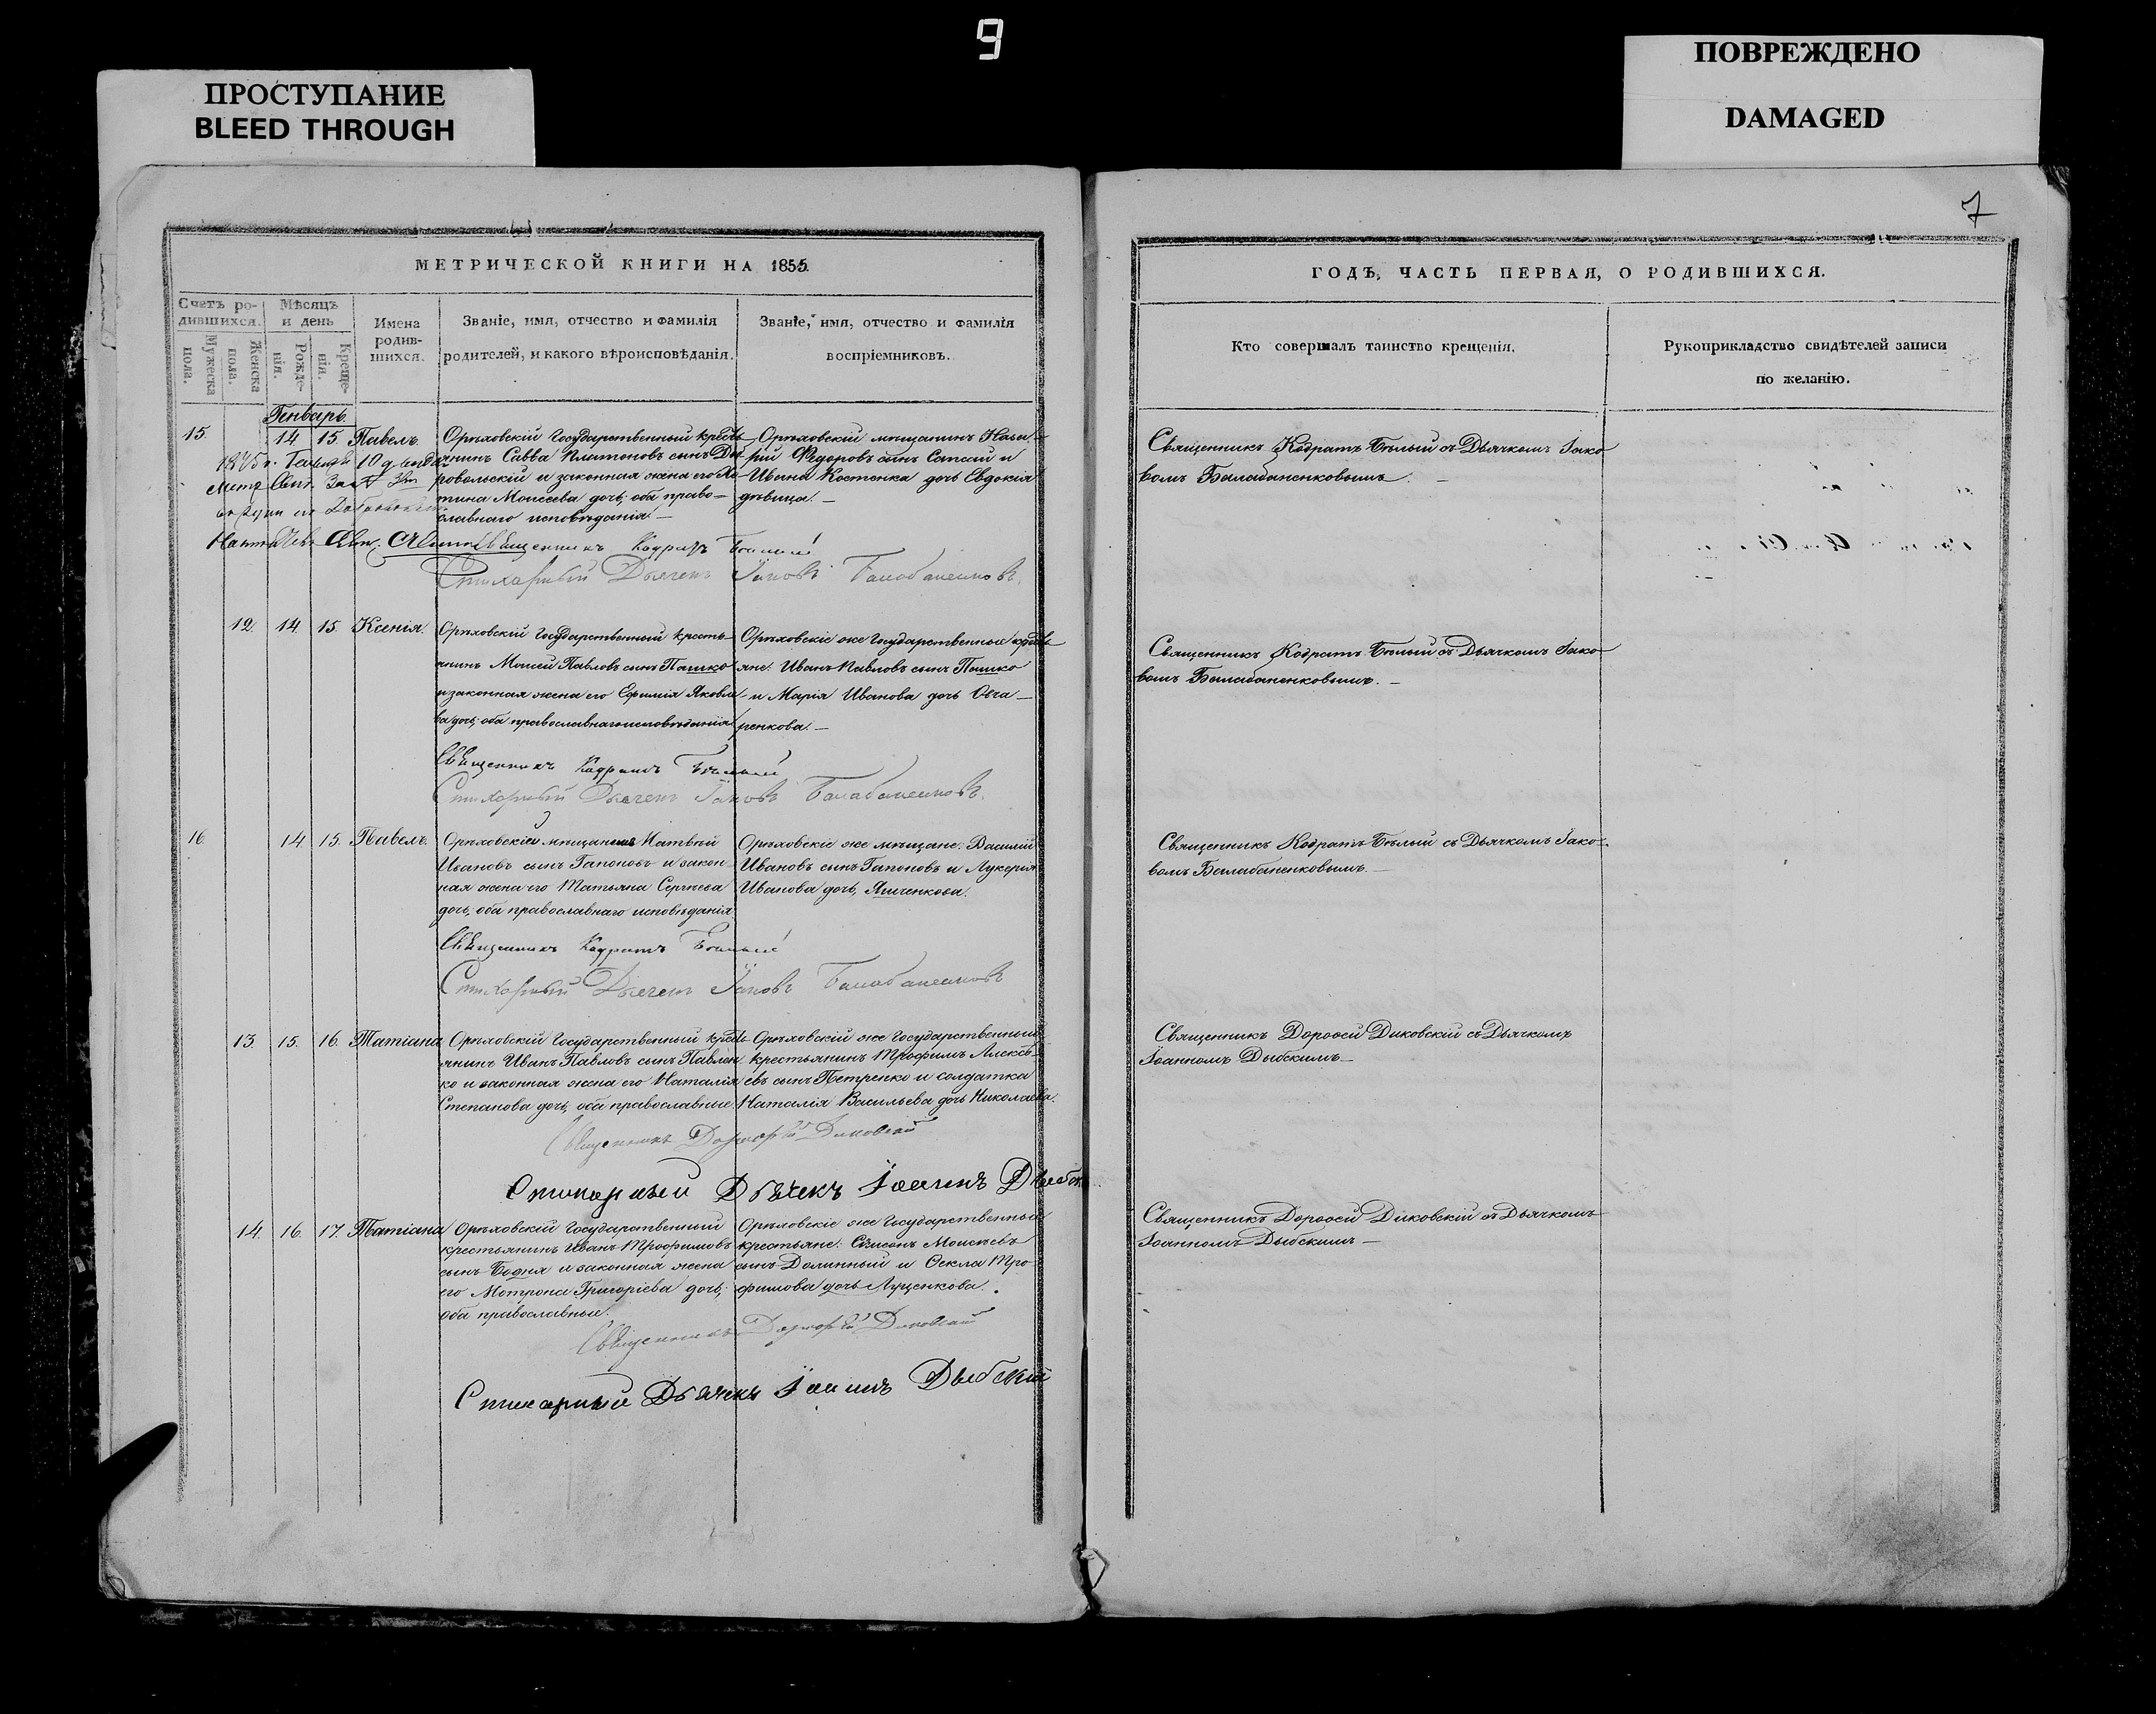 9
ПРОСТУПАНИЕ
BLEED THROUGH
ПОВРЕЖДЕНО
DAMAGED
7
МЕТРИЧЕСКОЙ КНИГИ НА 1855
Счетъ ро-
дившихся.
Мѣсяцъ
и день
Мужеска
пола.
Женска
пола.
Рожде-
нія.
Креще-
нія.
Имена
родив-
шихся.
Званіе, имя, отчество и фамилія
родителей, и какого вѣроисповѣданія.
Званіе, имя, отчество и фамилія
воспріемниковъ.
Генварь
15. 14 15 Павелъ.
Орѣховскій Государственный кресть-
янинъ Савва Платоновъ сынъ
ровольскій и законная жена его
Моисеева дочь; оба право-
славнаго исповѣданія.
Орѣховскій мѣщанинъ
Федоровъ сынъ и
Ивана Костенка дочь Евдокія
дѣвица.
Священникъ Кодратъ Бѣлый
Стихарный Дьячекъ Іаковъ Балабаненковъ.
12. 14. 15. Ксенія.
Орѣховскій Государственный кресть-
янинъ Моисей Павловъ сынъ Пашко
и законная жена его Ефимія Яковле-
ва дочь; оба православнаго исповѣданія.
Орѣховскіе же Государственные кресть-
яне: Иванъ Павловъ сынъ Пашко
и Марія Иванова дочь Овча-
ренкова.
Священникъ Кодратъ Бѣлый
Стихарный Дьячекъ Іаковъ Балабаненковъ.
16. 14. 15. Павелъ.
Орѣховскій мѣщанинъ Матвѣй
Ивановъ сынъ Гапоновъ и закон-
ная жена его Татьяна Сергѣева
дочь, оба православнаго исповѣданія.
Орѣховскіе же мѣщане: Василій
Ивановъ сынъ Гапоновъ и Лукерія
Иванова дочь, Яшченкова.
Священникъ Кодратъ Бѣлый
Стихарный Дьячекъ Іаковъ Балабаненковъ
13. 15. 16. Татіана
Орѣховскій Государственный кресть-
янинъ Иванъ Павловъ сынъ Павлен-
ко и законная жена его Наталія
Степанова дочь, оба православные.
Орѣховскій же Государственный
крестьянинъ Трофимъ Алексѣ-
евъ сынъ Петренко и солдатка
Наталія Васильева дочь Николаева.
Священникъ Дорофей Диковскій
Стихарный Дьячекъ Іоаннъ Дыбскій
14. 16. 17. Татіана
Орѣховскій Государственный
крестьянинъ Иванъ Трофимовъ
сынъ Бодня и законная жена
его Мотрона Григоріева дочь;
оба православные.
Орѣховскіе же Государственные
крестьяне: Симеонъ Моисеевъ
сынъ Долинный и Ѳекла Тро-
фимова дочь Луценкова.
Священникъ Дорофей Диковскій
Стихарный Дьячекъ Іоаннъ Дыбскій
ГОДЪ, ЧАСТЬ ПЕРВАЯ, О РОДИВШИХСЯ.
Кто совершалъ таинство крещенія.
Рукоприкладство свидѣтелей записи
по желанію.
Священникъ Кодратъ Бѣлый съ Дьячкомъ Іако-
вомъ Балабаненковымъ.
Священникъ Кодратъ Бѣлый съ Дьячкомъ Іако-
вомъ Балабаненковымъ.
Священникъ Кодратъ Бѣлый съ Дьячкомъ Іако-
вомъ Балабаненковымъ.
Священникъ Дороѳей Диковскій съ Дьячкомъ
Іоанномъ Дыбскимъ
Священникъ Дороѳей Диковскій съ Дьячкомъ
Іоанномъ Дыбскимъ